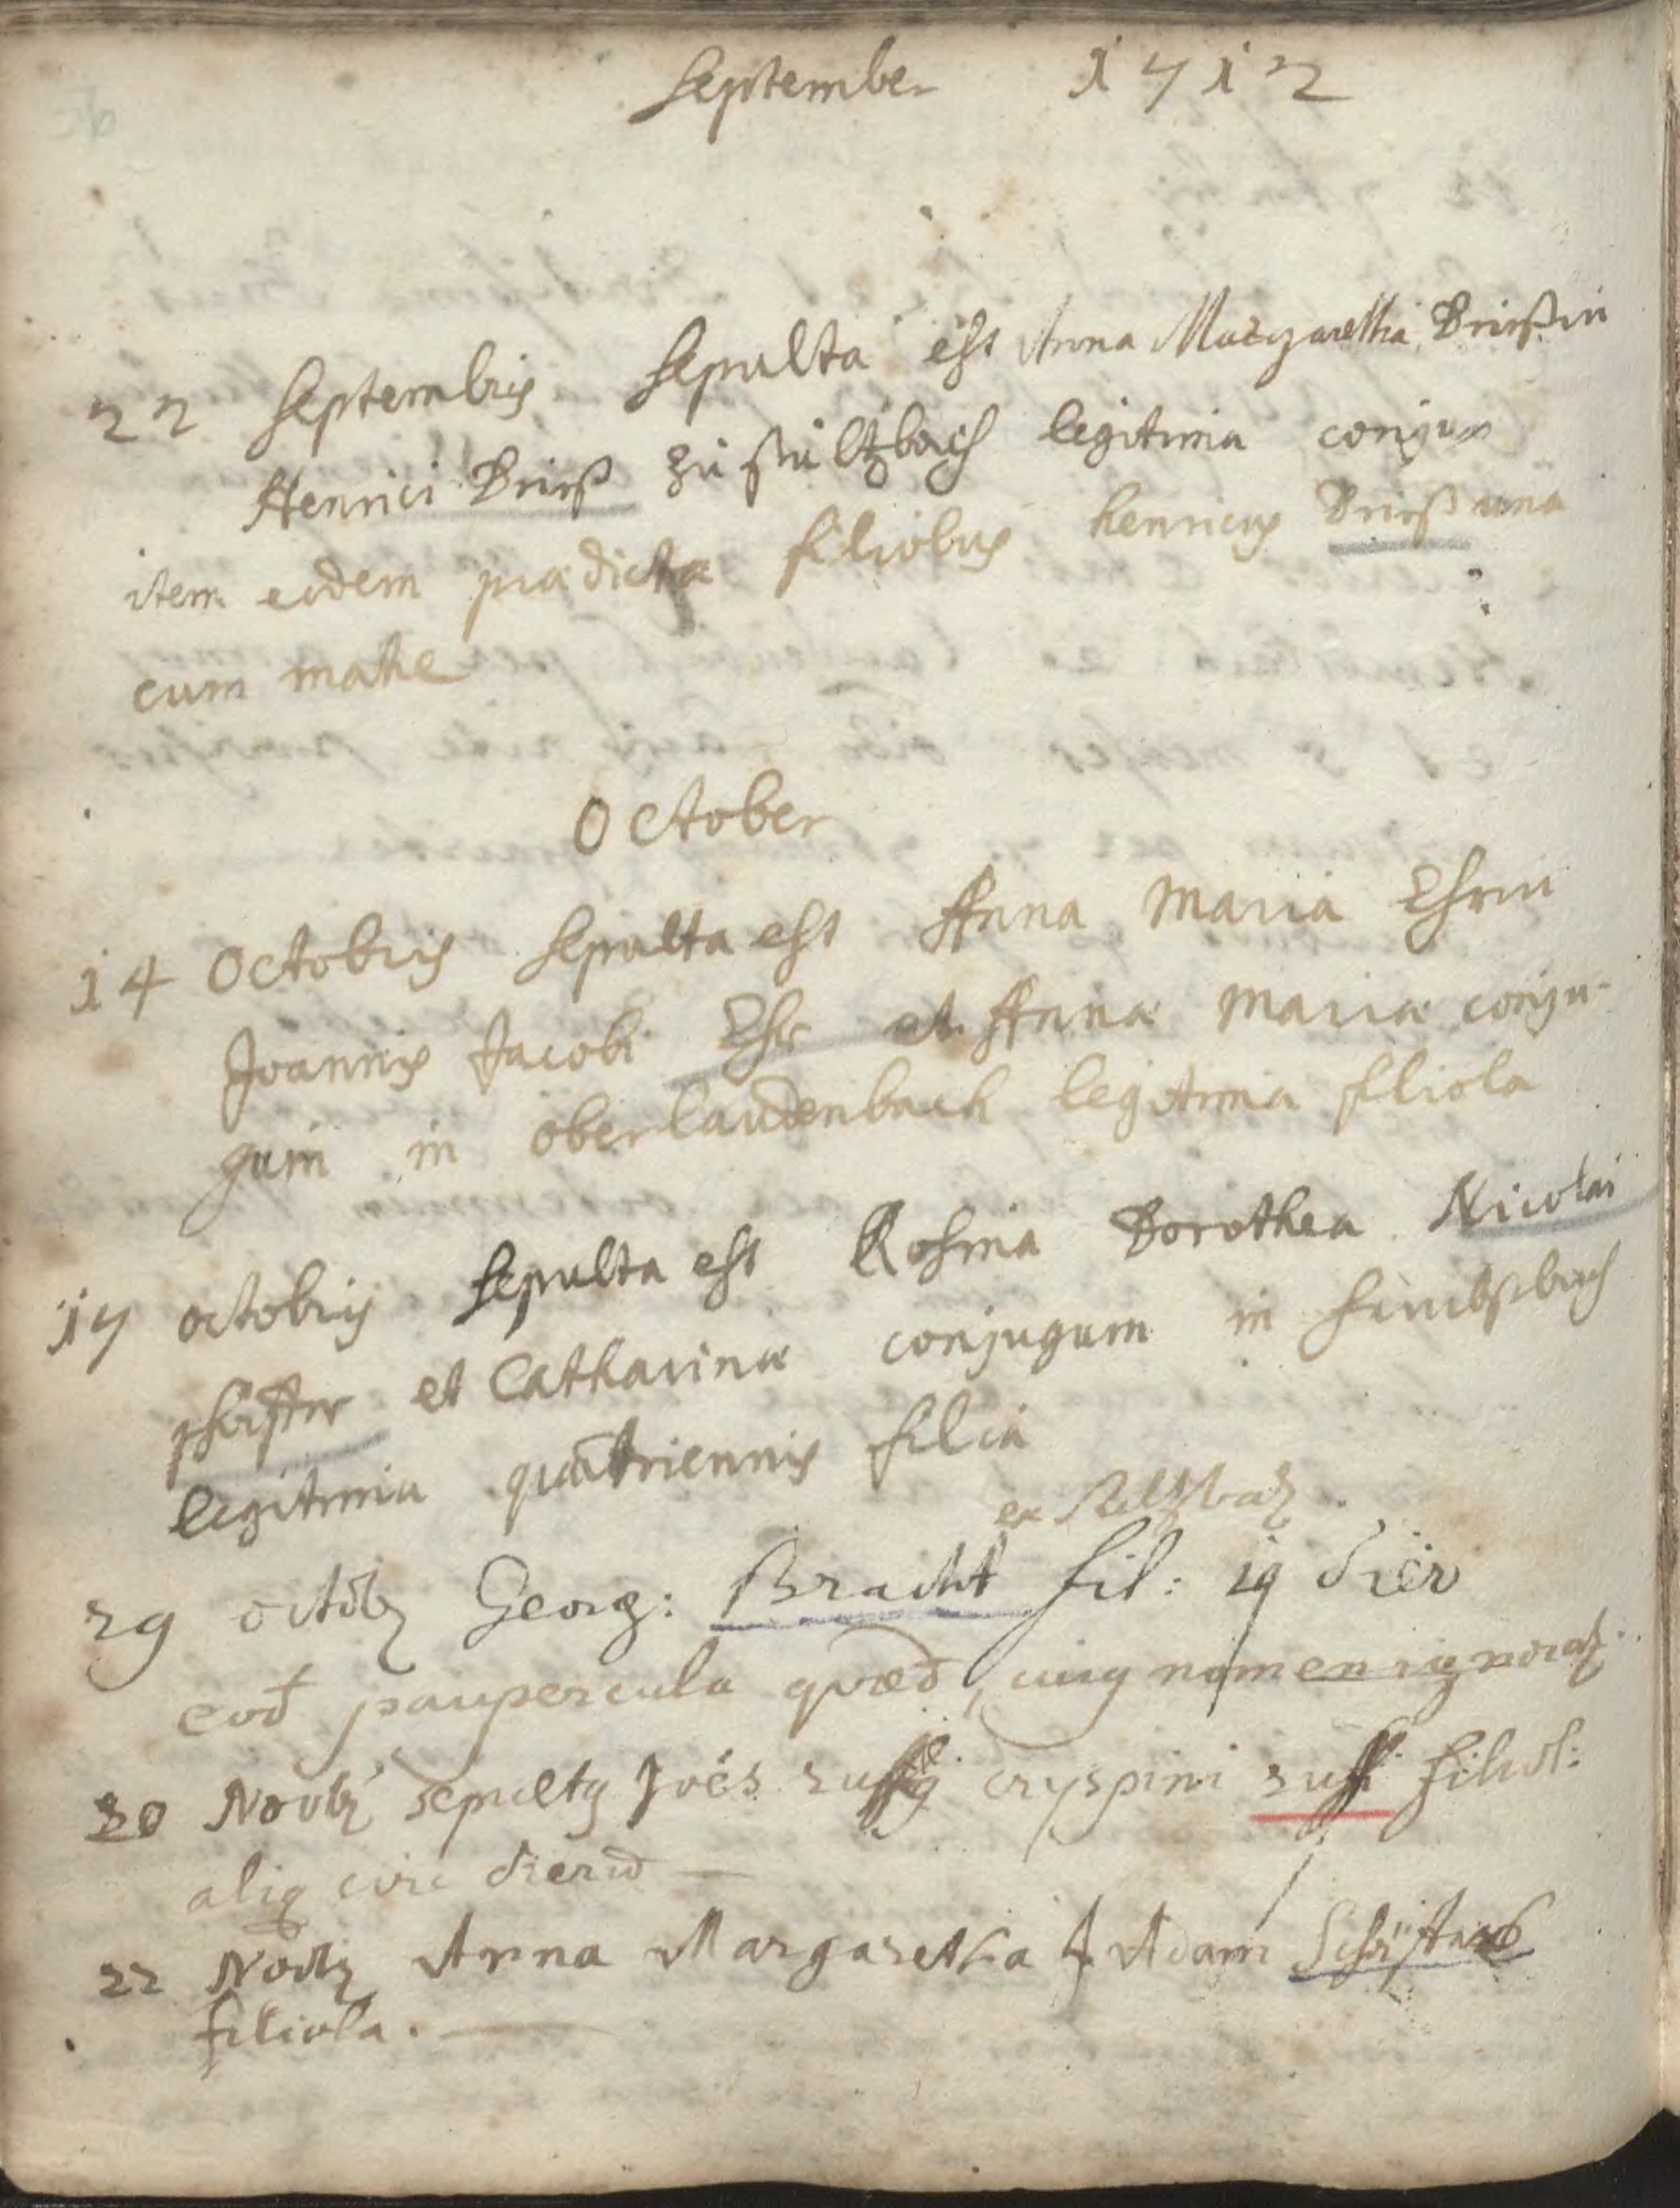 September 1712
22 Septembris Sepulta est Anna Margaretha
Henrici zu Sultzbach legitima conjux
item eidem prædictæ filiolus henricus una
cum matre
October
14 Octobris Sepulta est Anna Maria Ehrin
Joannis Jacobi Ehr et Annæ Mariæ conju-
gum in oberlaudenbach legitima filiola
17 octobris Sepulta est Rosina Dorothea Nicolai
et Catharinæ conjugum in
legitima quatriennis filia
ex Sultzbach
29 octobr Georg: Bracht fil: 19 dier
eod paupercula quæd, cuius nomen ignorat
20 Novbr sepultus Joēs cryspini filiol:
aliq circ dierum
22 Novbr Anna Margaretha Adam
filiola.